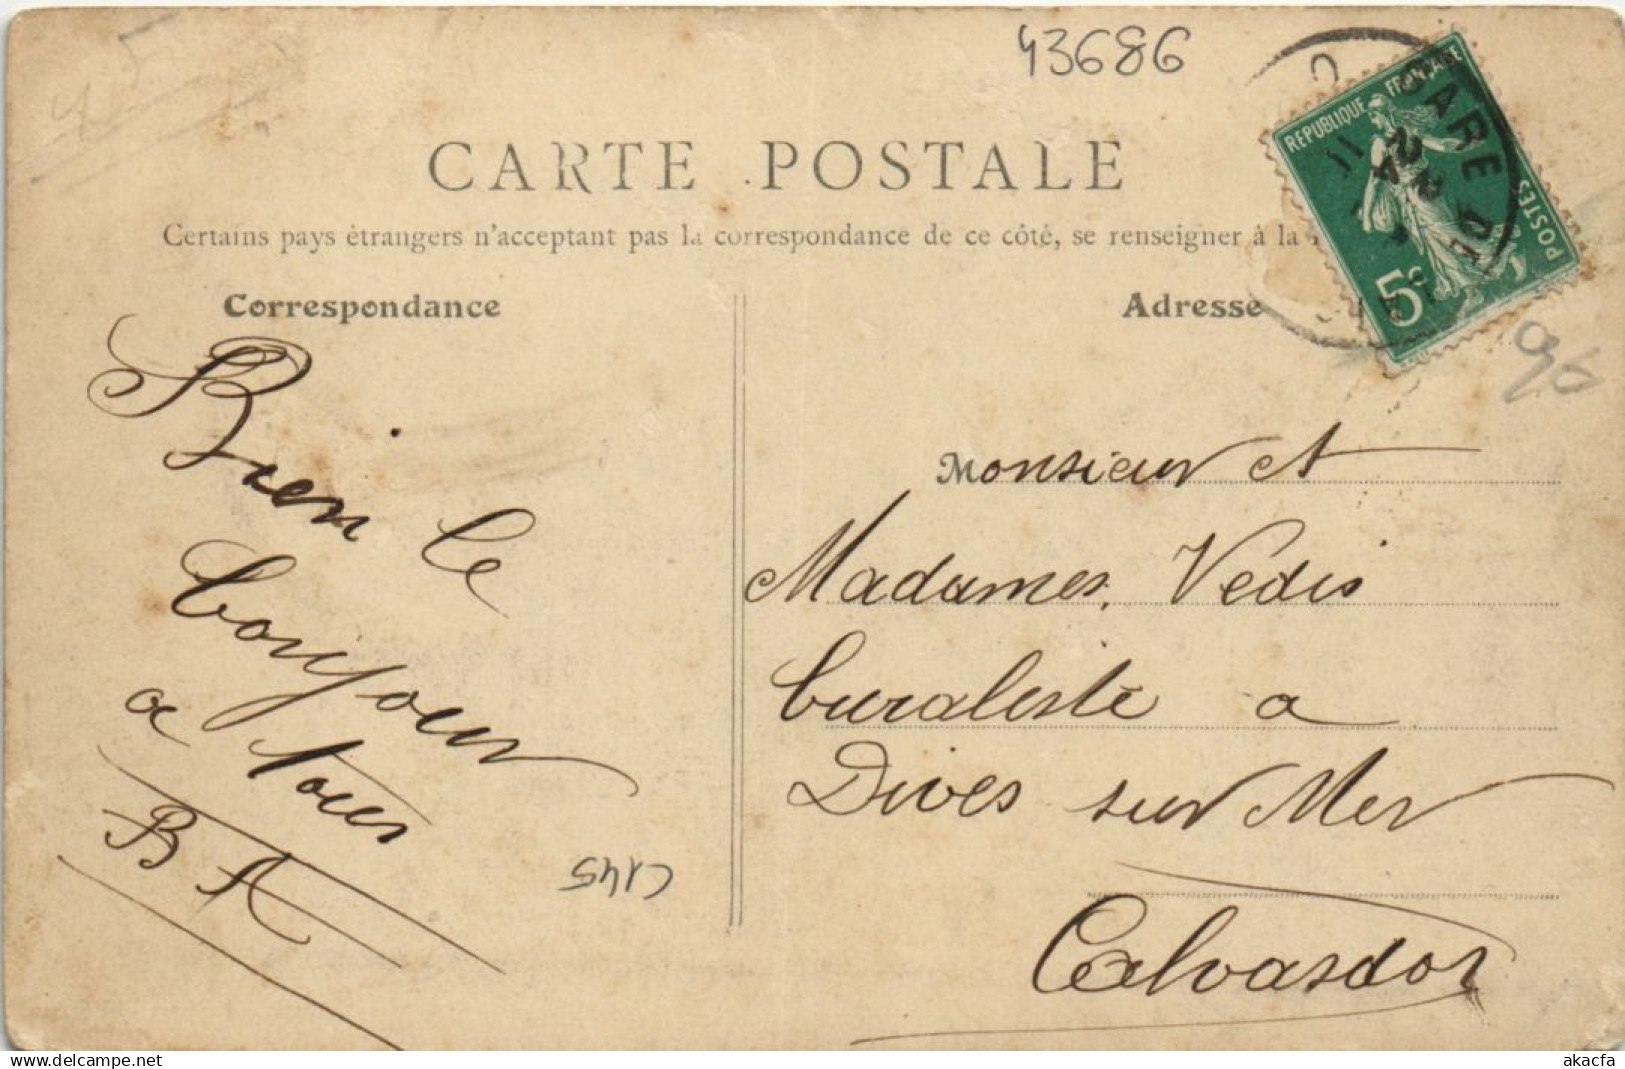 43686
CARTE POSTALE
Certains pays étrangers n'acceptant pas la correspondance de ce côté, se renseigner à la
Correspondance
Adresse
REPUBLIQUE FRANÇAISE
POSTES
5c
GARE DE
Bien le
bonjour
a tous
B A
C145
Monsieur et
Madames. Vedis
buraliste a
Dives sur Mer
Calvasdos
delcampe.net
akacfa